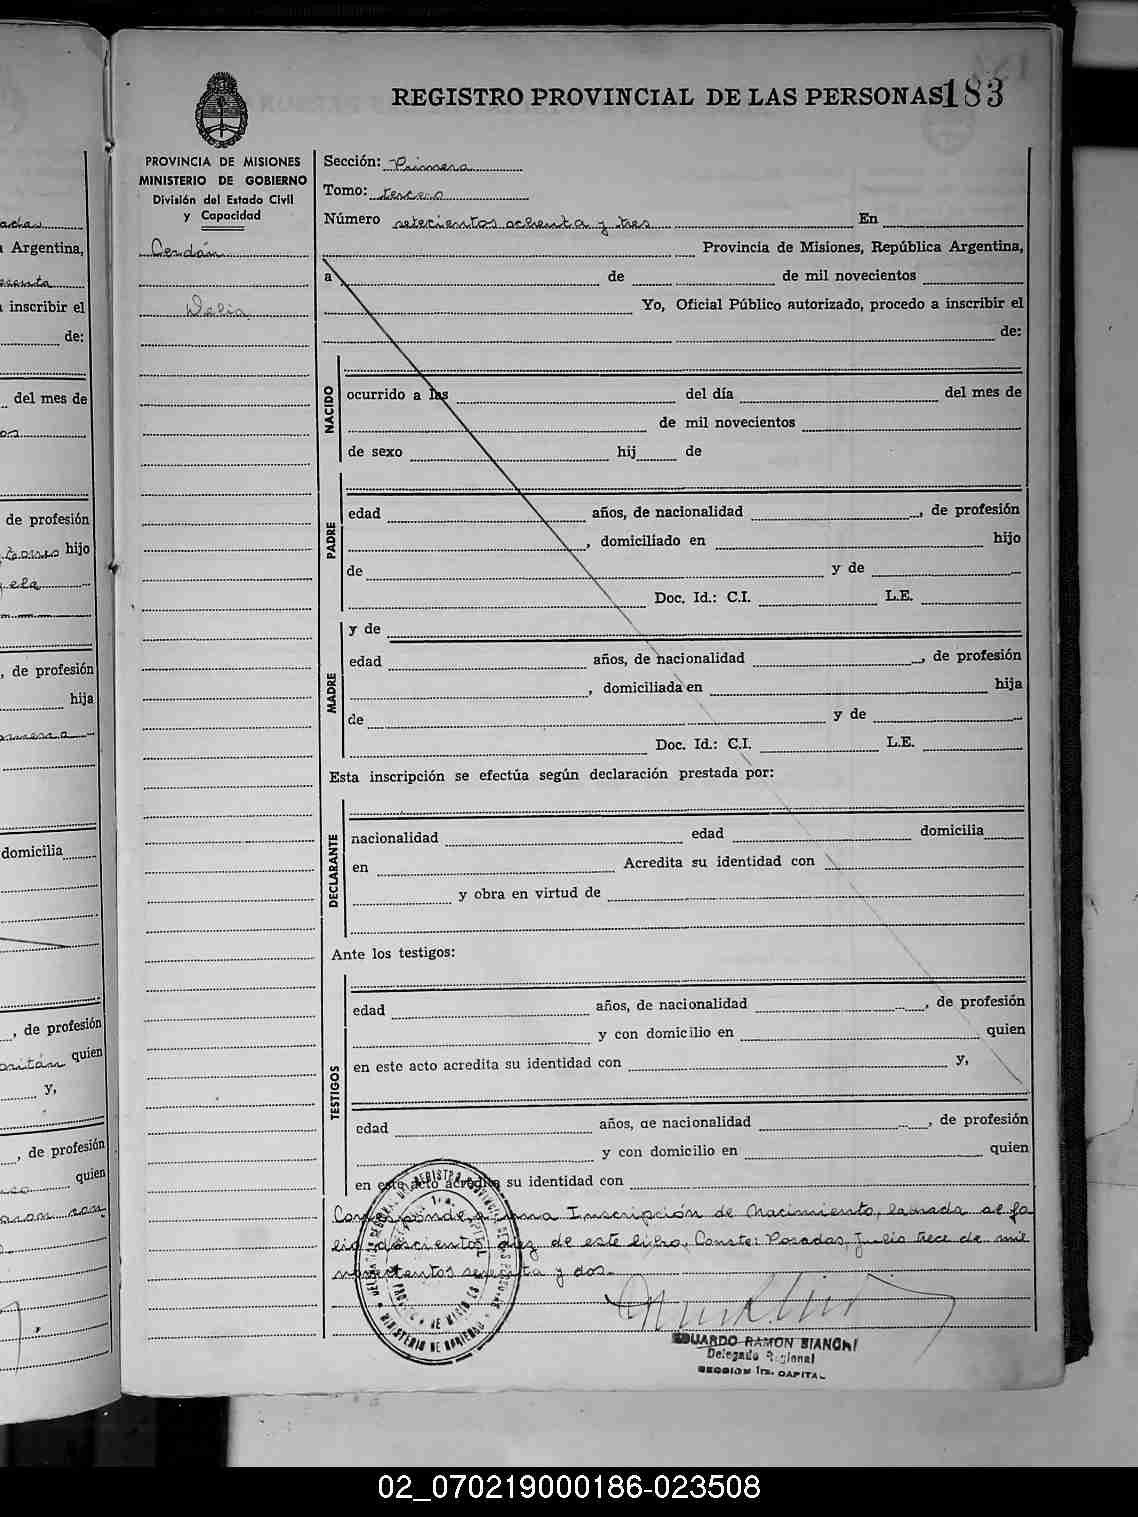 REGISTRO PROVINCIAL DE LAS PERSONAS
183
PROVINCIA DE MISIONES
MINISTERIO DE GOBIERNO
División del Estado Civil
y Capacidad
Cerdán
Delia
Sección: Primera
Tomo: tercero
Número setecientos ochenta y tres En
Provincia de Misiones, República Argentina,
a de de mil novecientos
Yo, Oficial Público autorizado, procedo a inscribir el
de:
NACIDO
ocurrido a las del día del mes de
de mil novecientos
de sexo hij de
PADRE
edad años, de nacionalidad , de profesión
, domiciliado en hijo
de y de
Doc. Id.: C.I. L.E.
MADRE
y de
edad años, de nacionalidad , de profesión
, domiciliada en hija
de y de
Doc. Id.: C.I. L.E.
Esta inscripción se efectúa según declaración prestada por:
DECLARANTE
nacionalidad edad domicilia
en Acredita su identidad con
y obra en virtud de
Ante los testigos:
TESTIGOS
edad años, de nacionalidad , de profesión
y con domicilio en quien
en este acto acredita su identidad con y,
edad años, de nacionalidad , de profesión
y con domicilio en quien
en este acto acredita su identidad con
Corresponde a una Inscripción de Nacimiento, labrada al fo
lio doscientos diez de este libro. Conste: Posadas, Julio trece de mil
novecientos setenta y dos.-
EDUARDO RAMON BIANCHI
Delegado Regional
SECCION 1ra. CAPITAL
Argentina,
inscribir el
de:
del mes de
de profesión
hijo
, de profesión
hija
domicilia
, de profesión
quien
y,
, de profesión
quien
02_070219000186-023508